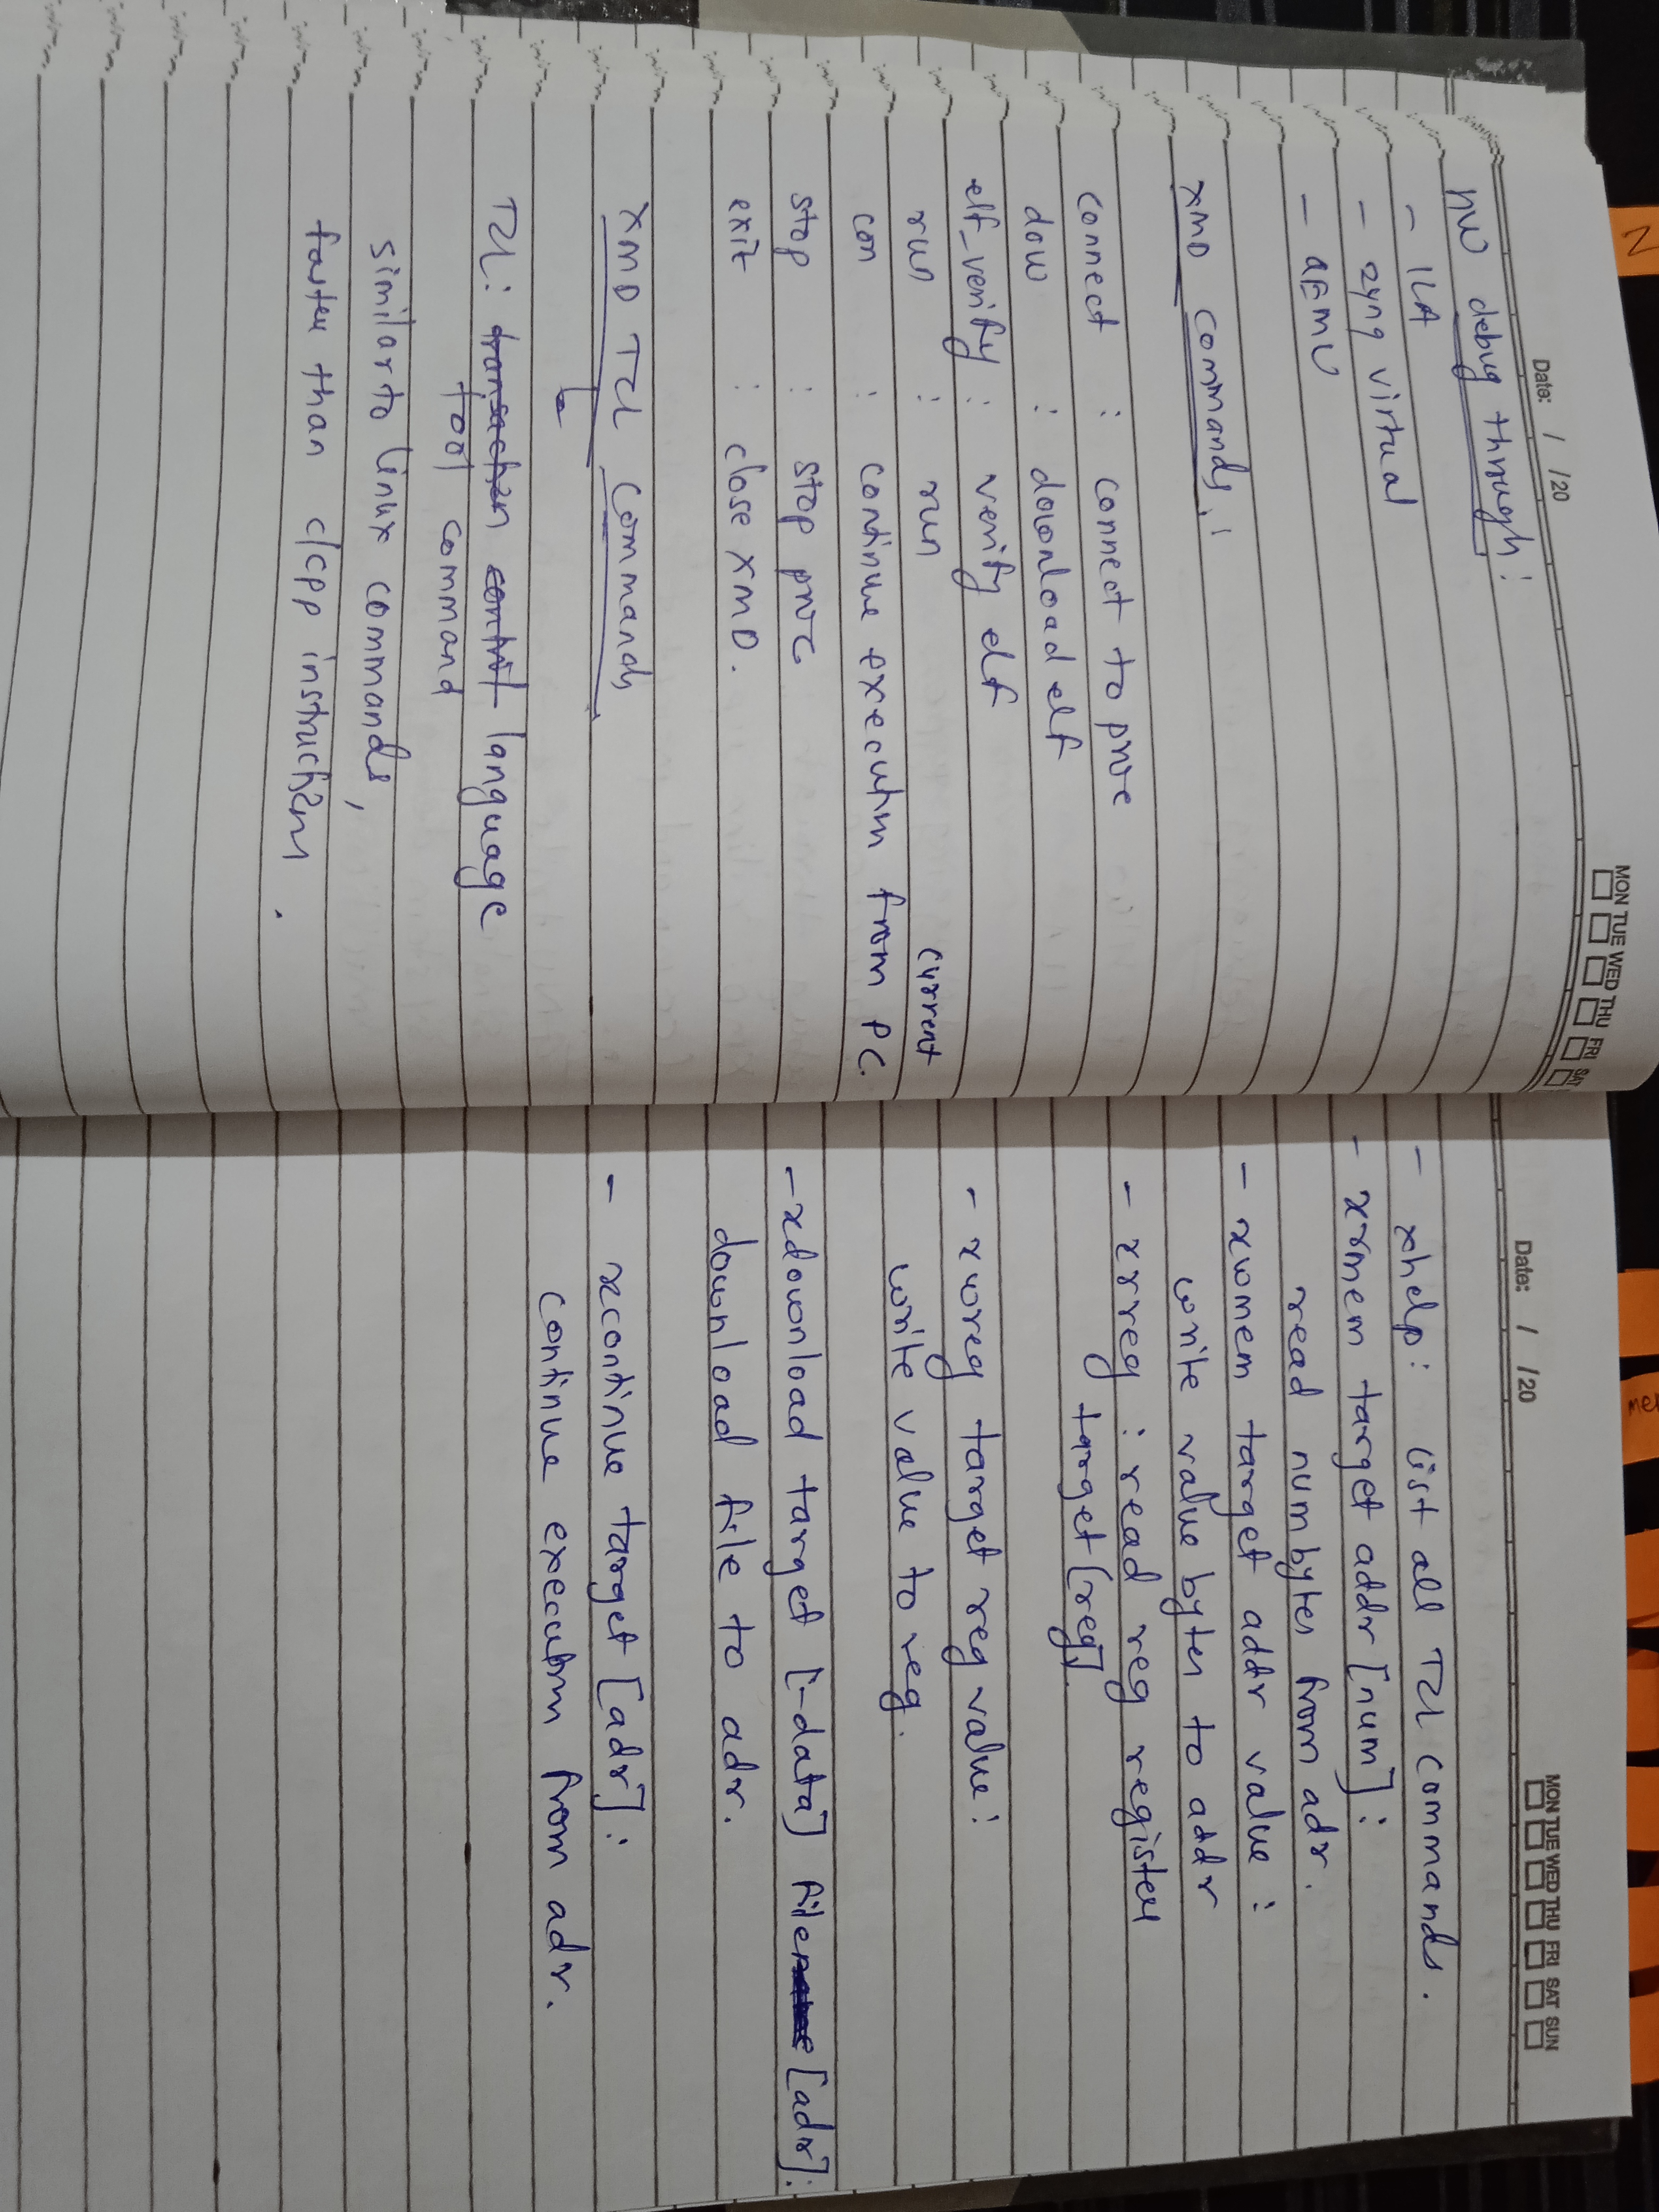 Date: / /20
MON TUE WED THU FRI SAT
HW debug through:
- ILA
- zynq virtual
- QEMU
XMD commands:
connect : connect to proc
dow : download elf
elf_verify : verify elf
run : run
con : continue execution from current PC.
stop : stop proc
exit : close XMD.
XMD TCL Commands
TCL: transaction control language
tool command
similar to linux commands,
faster than c/cpp instructions.
Date: / /20
MON TUE WED THU FRI SAT SUN
- xhelp: list all TCL commands.
- xrmem target addr [num]:
read num bytes from adr.
- xwmem target addr value:
write value bytes to addr
- xrreg : read reg register
target [reg]
- xwreg target reg value:
write value to reg.
- xdownload target [-data] file [adr]:
download file to adr.
- xcontinue target [adr]:
continue execution from adr.
N